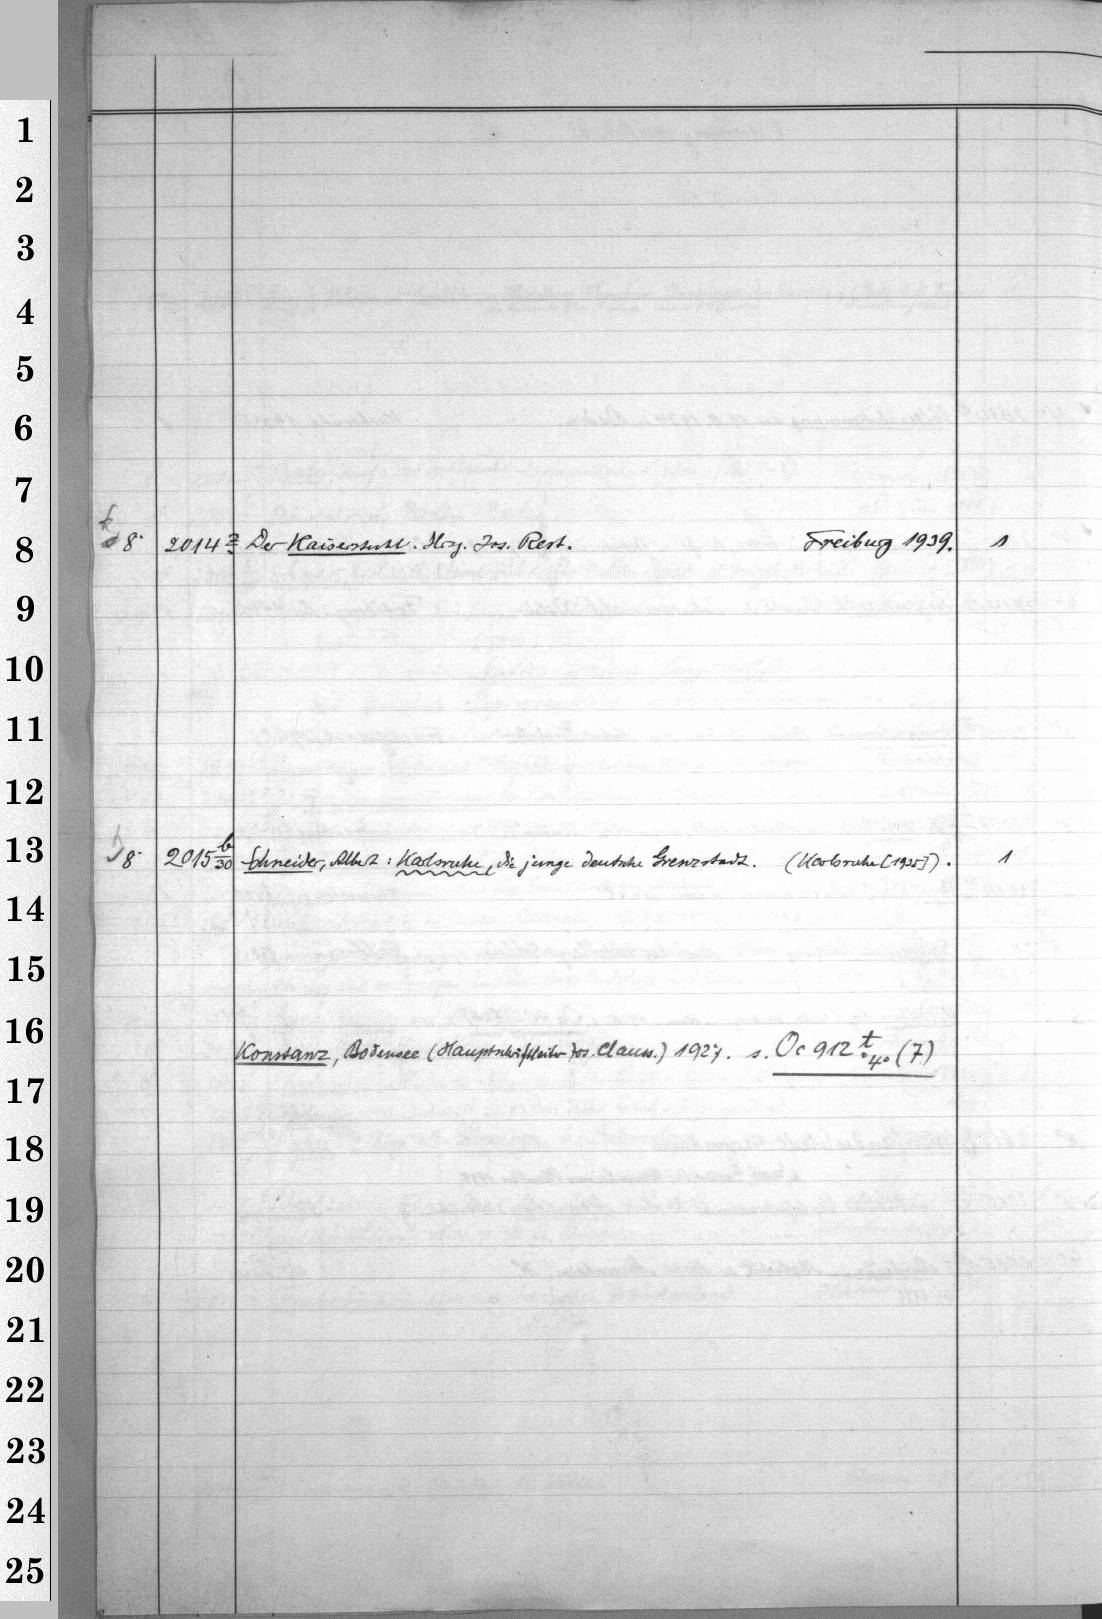 1
2
3
4
5
6
7
8 8° 2014 z Der Kaiserstuhl. Hrsg. Jos. Rest. Freiburg 1939. 1
9
10
11
12
13 8° 2015 b/30 Schneider, Albert: Karlsruhe, die junge deutsche Grenzstadt. (Karlsruhe [1935]). 1
14
15
16 Konstanz, Bodensee (Hauptschriftleiter Jos. Clauss.) 1927. s. Oc 912 t 4° (7)
17
18
19
20
21
22
23
24
25